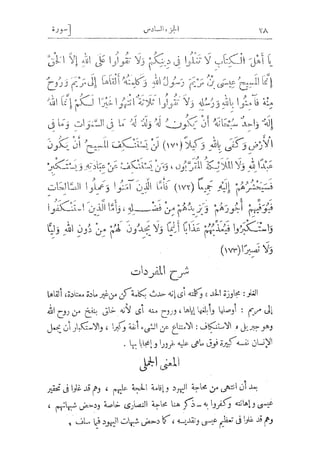 ٢٨ الجزء السادس [سورة
يَا أَهْلَ الْكِتَابِ لَا تَغْلُوا فِي دِينِكُمْ وَلَا تَقُولُوا عَلَى اللهِ إِلَّا الْحَقَّ
إِنَّمَا الْمَسِيحُ عِيسَى بْنُ مَرْيَمَ رَسُولُ اللهِ وَكَلِمَتُهُ أَلْقَاهَا إِلَى مَرْيَمَ وَرُوحٌ
مِنْهُ فَآمِنُوا بِاللهِ وَرُسُلِهِ وَلَا تَقُولُوا ثَلَاثَةٌ انْتَهُوا خَيْرًا لَكُمْ إِنَّمَا اللهُ
إِلَهٌ وَاحِدٌ سُبْحَانَهُ أَنْ يَكُونَ لَهُ وَلَدٌ لَهُ مَا فِي السَّمَوَاتِ وَمَا فِي
الْأَرْضِ وَكَفَى بِاللهِ وَكِيلًا (١٧١) لَنْ يَسْتَنْكِفَ الْمَسِيحُ أَنْ يَكُونَ
عَبْدًا لِلهِ وَلَا الْمَلَائِكَةُ الْمُقَرَّبُونَ، وَمَنْ يَسْتَنْكِفْ عَنْ عِبَادَتِهِ وَيَسْتَكْبِرْ
فَسَيَحْشُرُهُمْ إِلَيْهِ جَمِيعًا (١٧٢) فَأَمَّا الَّذِينَ آمَنُوا وَعَمِلُوا الصَّالِحَاتِ
فَيُوَفِّيهِمْ أُجُورَهُمْ وَيَزِيدُهُمْ مِنْ فَضْلِهِ، وَأَمَّا الَّذِينَ اسْتَنْكَفُوا
وَاسْتَكْبَرُوا فَيُعَذِّبُهُمْ عَذَابًا أَلِيمًا وَلَا يَجِدُونَ لَهُمْ مِنْ دُونِ اللهِ وَلِيًّا
وَلَا نَصِيرًا (١٧٣)
شرح المفردات
الغلو: مجاوزة الحد؛ وكلمته أى إنه حدث بكلمة كن من غير مادة معتادة، ألقاها
إلى مريم: أوصلها وأبلغها إياها، وروح منه أى لأنه خلق بنفخ من روح الله
وهو جبريل، الاستنكاف: الامتناع عن الشىء أنفة وكبرا، والاستكبار أن يجعل
الإنسان نفسه كبيرة فوق ماهى عليه غرورا وإعجابا بها.
المعنى الجملى
بعد أن انتهى من محاجة اليهود وإقامة الحجة عليهم، وهم قد غلوا فى تحقير
عيسى وإهانته وكفروا به - ذكر هنا محاجة النصارى خاصة ودحض شبهاتهم،
وهم قد غلوا فى تعظيم عيسى وتقديسه، كما دحض شبهات اليهود فيما سلف،